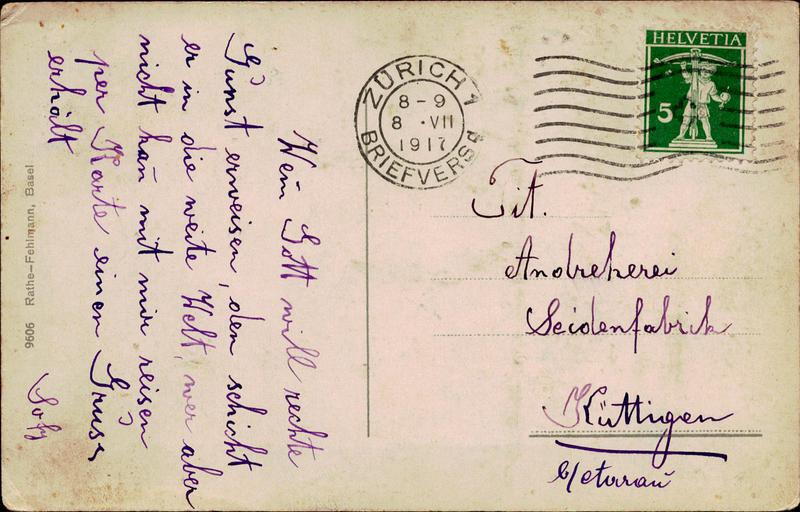 Wem Gott will rechte
Gunst erweisen, den schickt
er in die weite Welt, wer aber
nicht kan mit mir reisen
per Karte einen Gruss
erhält
Sofy
9606 Rathe-Fehlmann, Basel
ZÜRICH 1
8-9
8 · VII
1917
BRIEFVERSD
HELVETIA
5
Tit.
Seidenfabrik
Küttigen